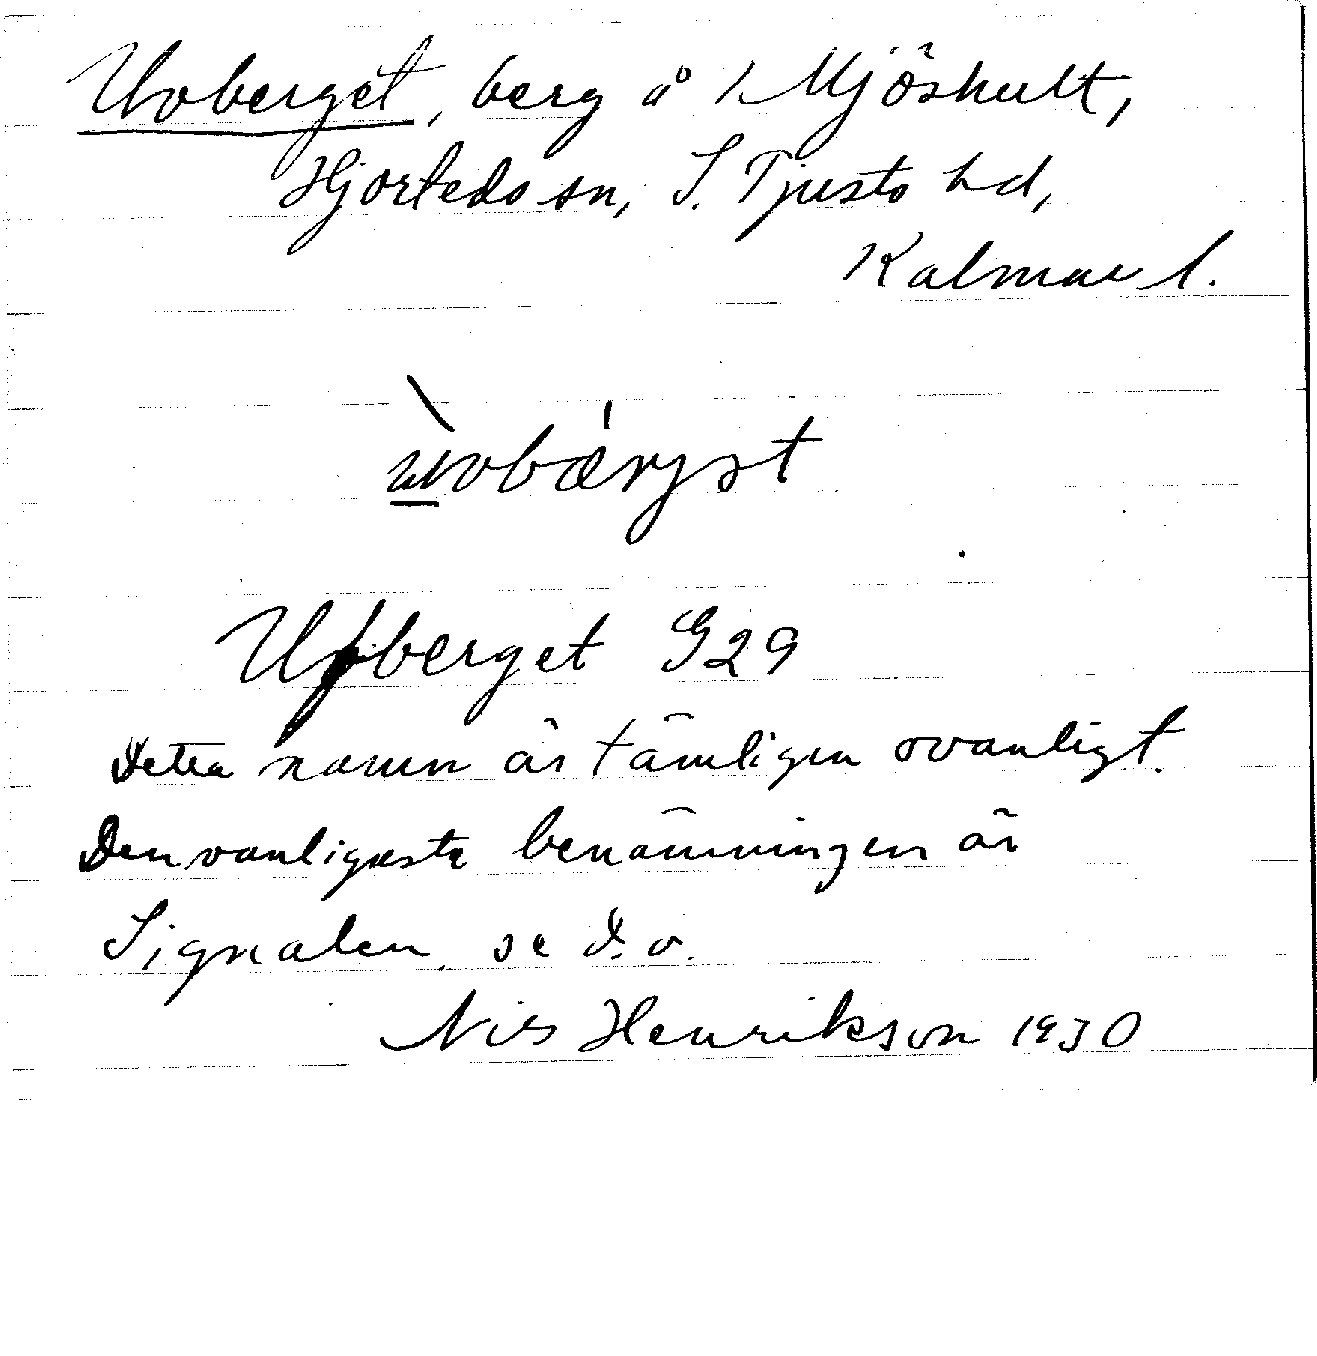 Uvberget, berg å 1 Mjöshult,
Hjorteds sn, S. Tjusts hd,
Kalmar l.
ùvobǽrjət
Ufberget G29
Detta namn är tämligen ovanligt.
Den vanligaste benämningen är
Signalen, se d. o.
Nils Henrikson 1930